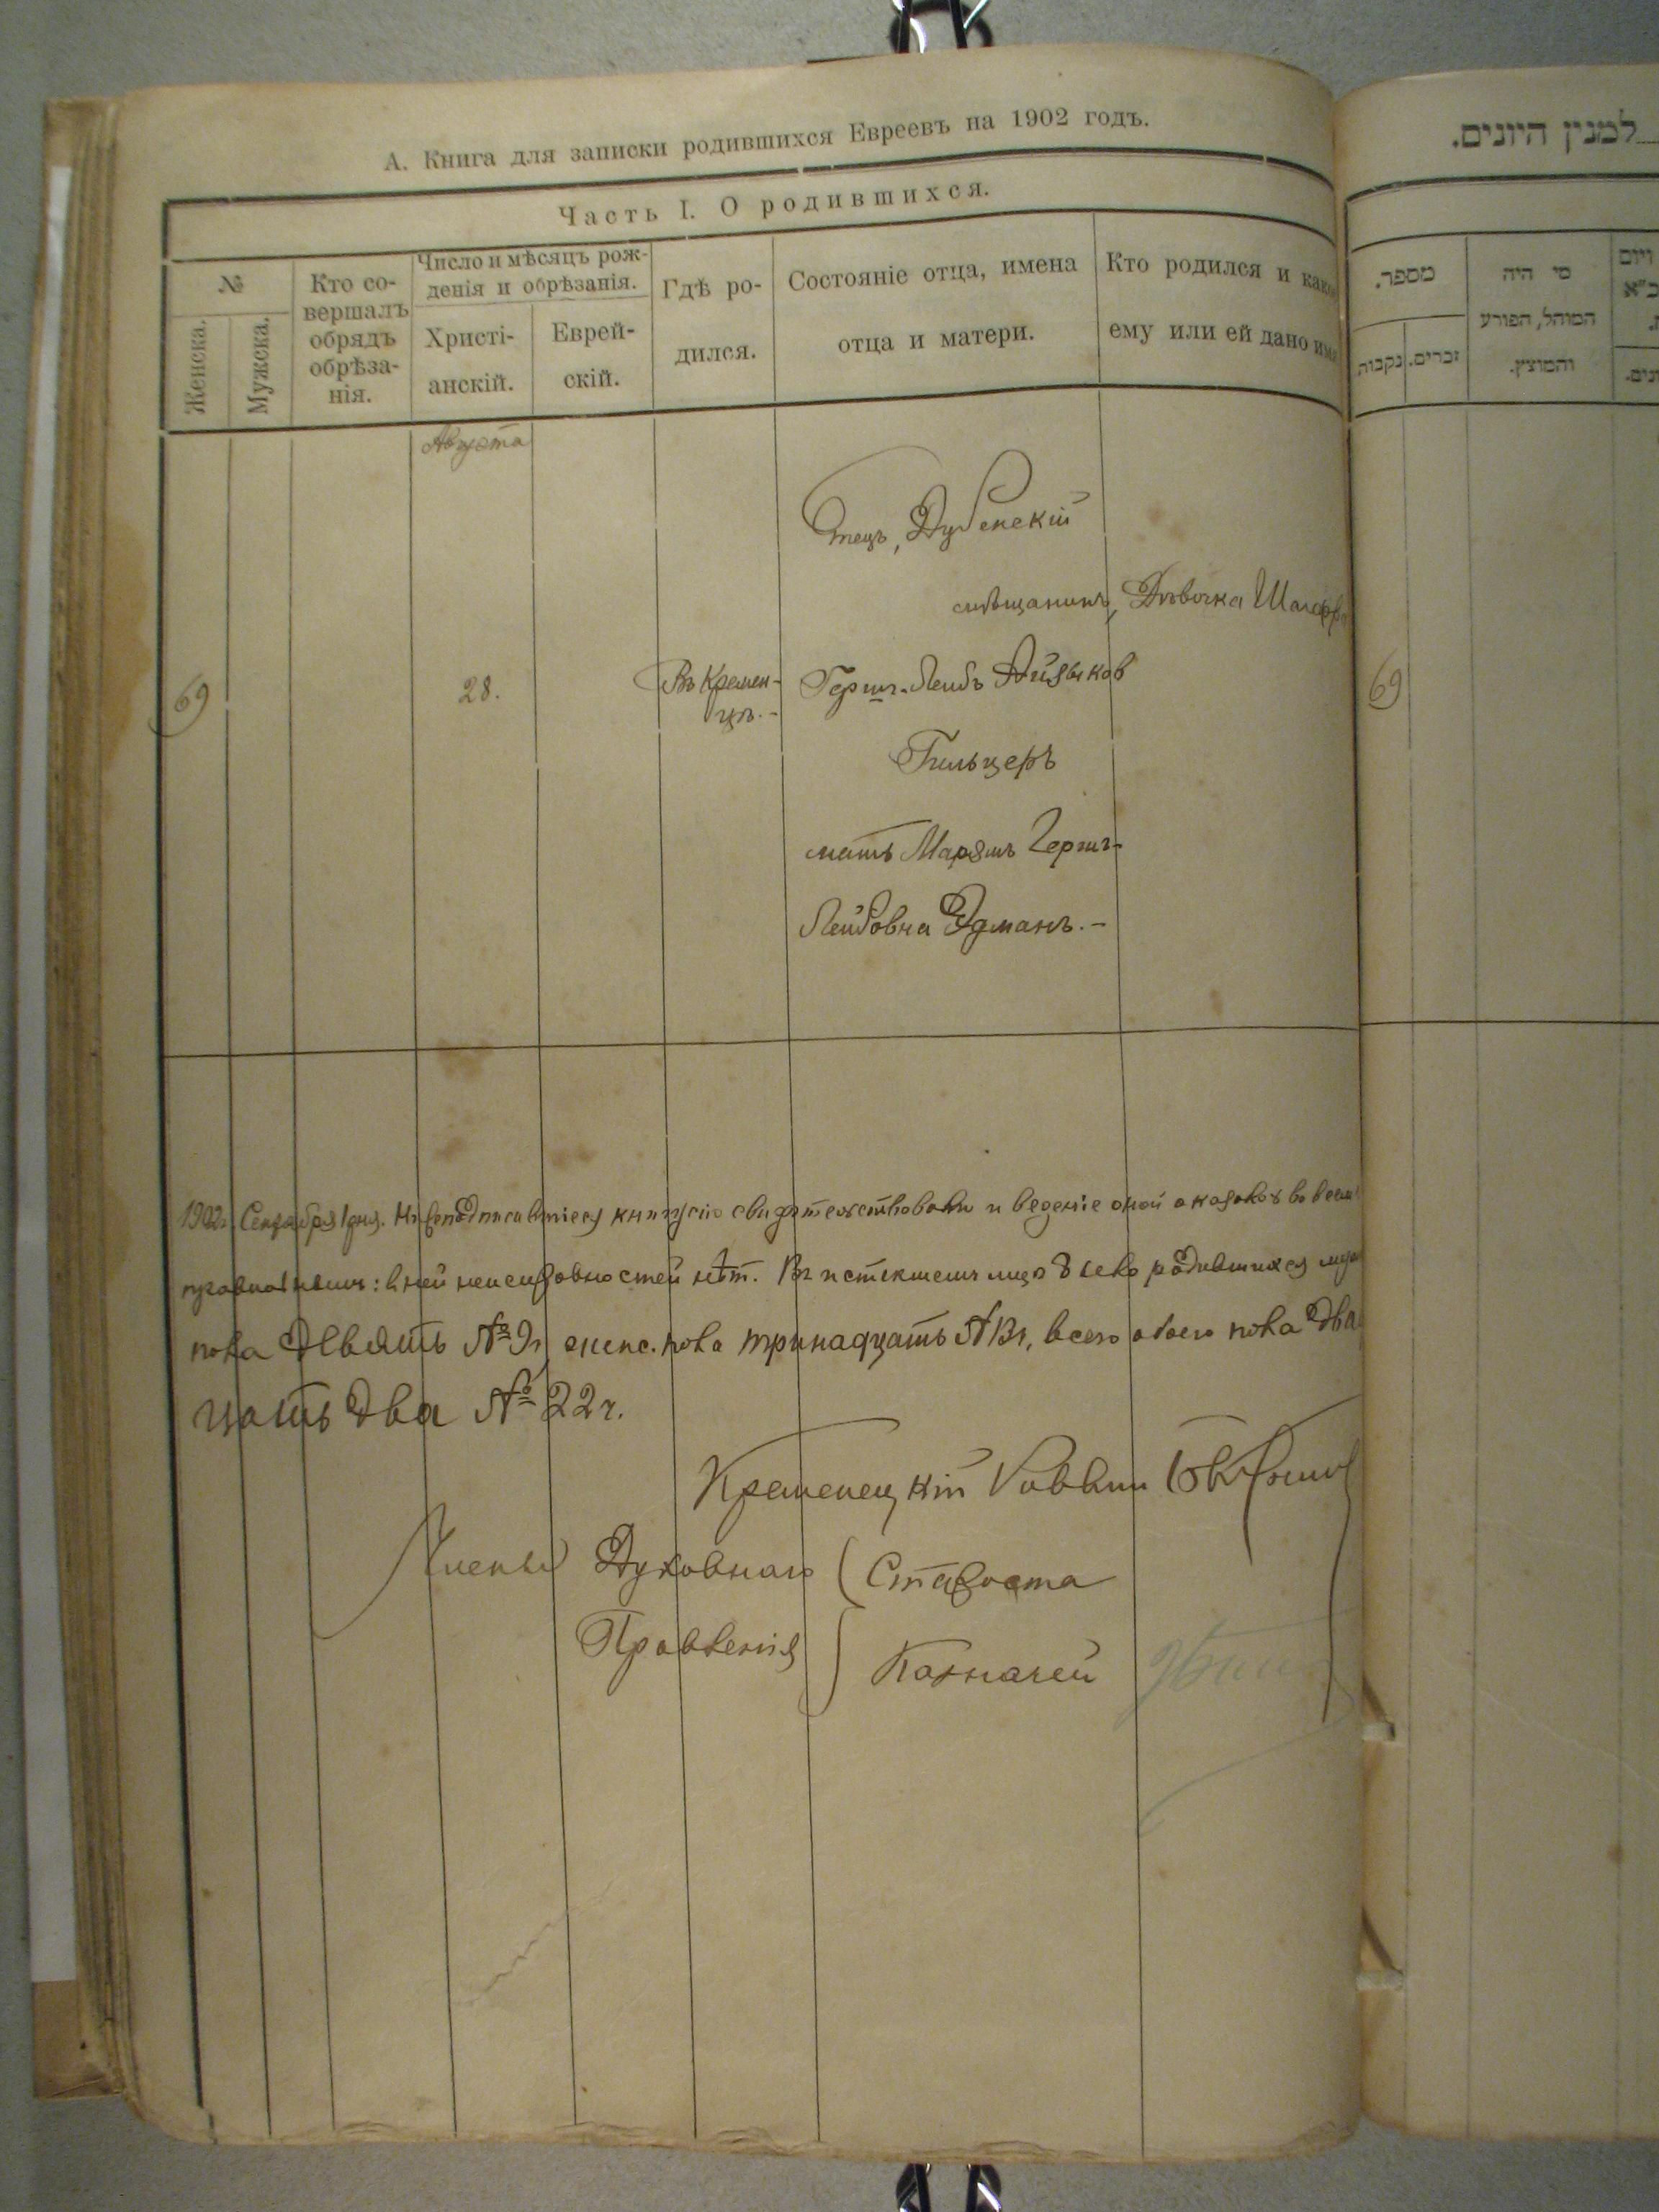 А. Книга для записки родившихся Евреевъ на 1902 годъ.
Часть I. О родившихся.
№
Женска.
Мужска.
Кто со-
вершалъ
обрядъ
обрѣза-
нія.
Число и мѣсяцъ рож-
денія и обрѣзанія.
Христі-
анскій.
Еврей-
скій.
Гдѣ ро-
дился.
Состояніе отца, имена
отца и матери.
Кто родился и какое
ему или ей дано имя
Августа
69
28.
Въ Кремен-
цѣ.-
Отецъ, Дубенскій
мѣщанинъ,
Герш-Лейбъ Айзиков
Гильцеръ
мать Марямъ Герш-
Лейбовна Эдманъ.-
Дѣвочка
1902 г. Сентября 1 дня. Нижеподписавшіеся книгу сію свидѣтельствовали и веденіе оной оказалось во всем
правильнымъ: в ней неисправностей нѣт. Въ истекшемъ мцѣ всего родившихся муж
пола Девять № 9, женс. пола тринадцать № 13, всего обоего пола Два
цать Два № 22 ч.
Кременецкій Раввин
Члены Духовнаго
Правленія
Староста
Казначей
למנין היונים.
מספר.
זכרים.
נקבות
מי היה
המוהל, הפורע
והמוצץ.
69